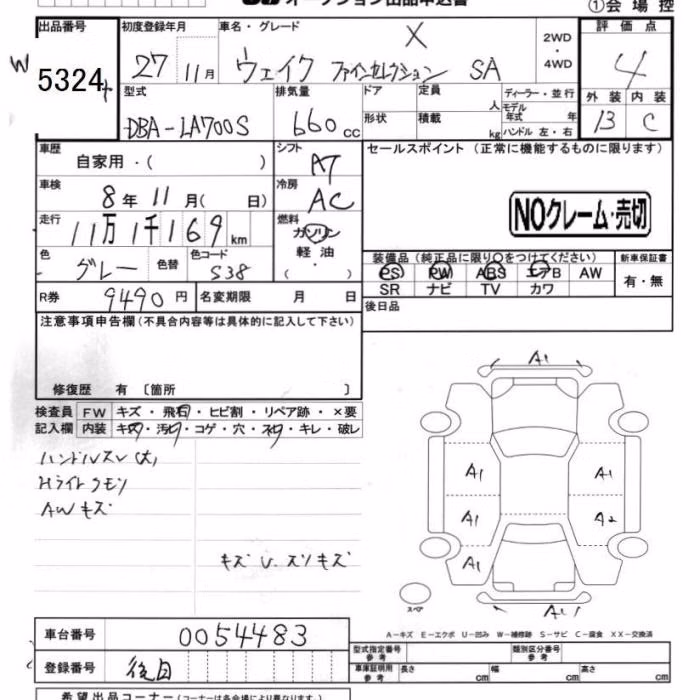 オークション出品申込書
①会場控
出品番号 初度登録年月 車名・グレード 評価点
W 5324 27 11月 ウェイク ファインセレクション X SA 2WD・4WD 4
型式 排気量 ドア 定員 人 ディーラー・並行 外装 内装
DBA-LA700S 660cc 形状 積載 kg モデル年式 年 ハンドル 左・右 B C
車歴 自家用・( ) シフト AT セールスポイント (正常に機能するものに限ります)
車検 8年11月( 日) 冷房 AC
NOクレーム・売切
走行 11万1千169km 燃料 ガソリン
軽油
( ・ )
色 グレー 色替 色コード S38
装備品 (純正品に限り○をつけてください) 新車保証書
PS PW ABS エアB AW 有・無
SR ナビ TV カワ
R券 9490円 名変期限 月 日 後日品
注意事項申告欄 (不具合内容等は具体的に記入して下さい)
修復歴 有 〔箇所 〕
検査員 FW キズ・飛石・ヒビ割・リペア跡・×要
記入欄 内装 キズ・汚れ・コゲ・穴・スレ・キレ・破レ
ハンドルスレ(大)
Hライトクモリ
AWキズ
キズ U. スリキズ
A1
A1 A1
A1 A2
A1
A1
スペア
A-キズ E-エクボ U-凹み W-補修跡 S-サビ C-腐食 XX-交換済
車台番号 0054483
型式指定番号 参考 類別区分番号 参考
登録番号 後日
車庫証明用 参考 長さ cm 幅 cm 高さ cm
希望出品コーナー (コーナーは各会場により異なります。)